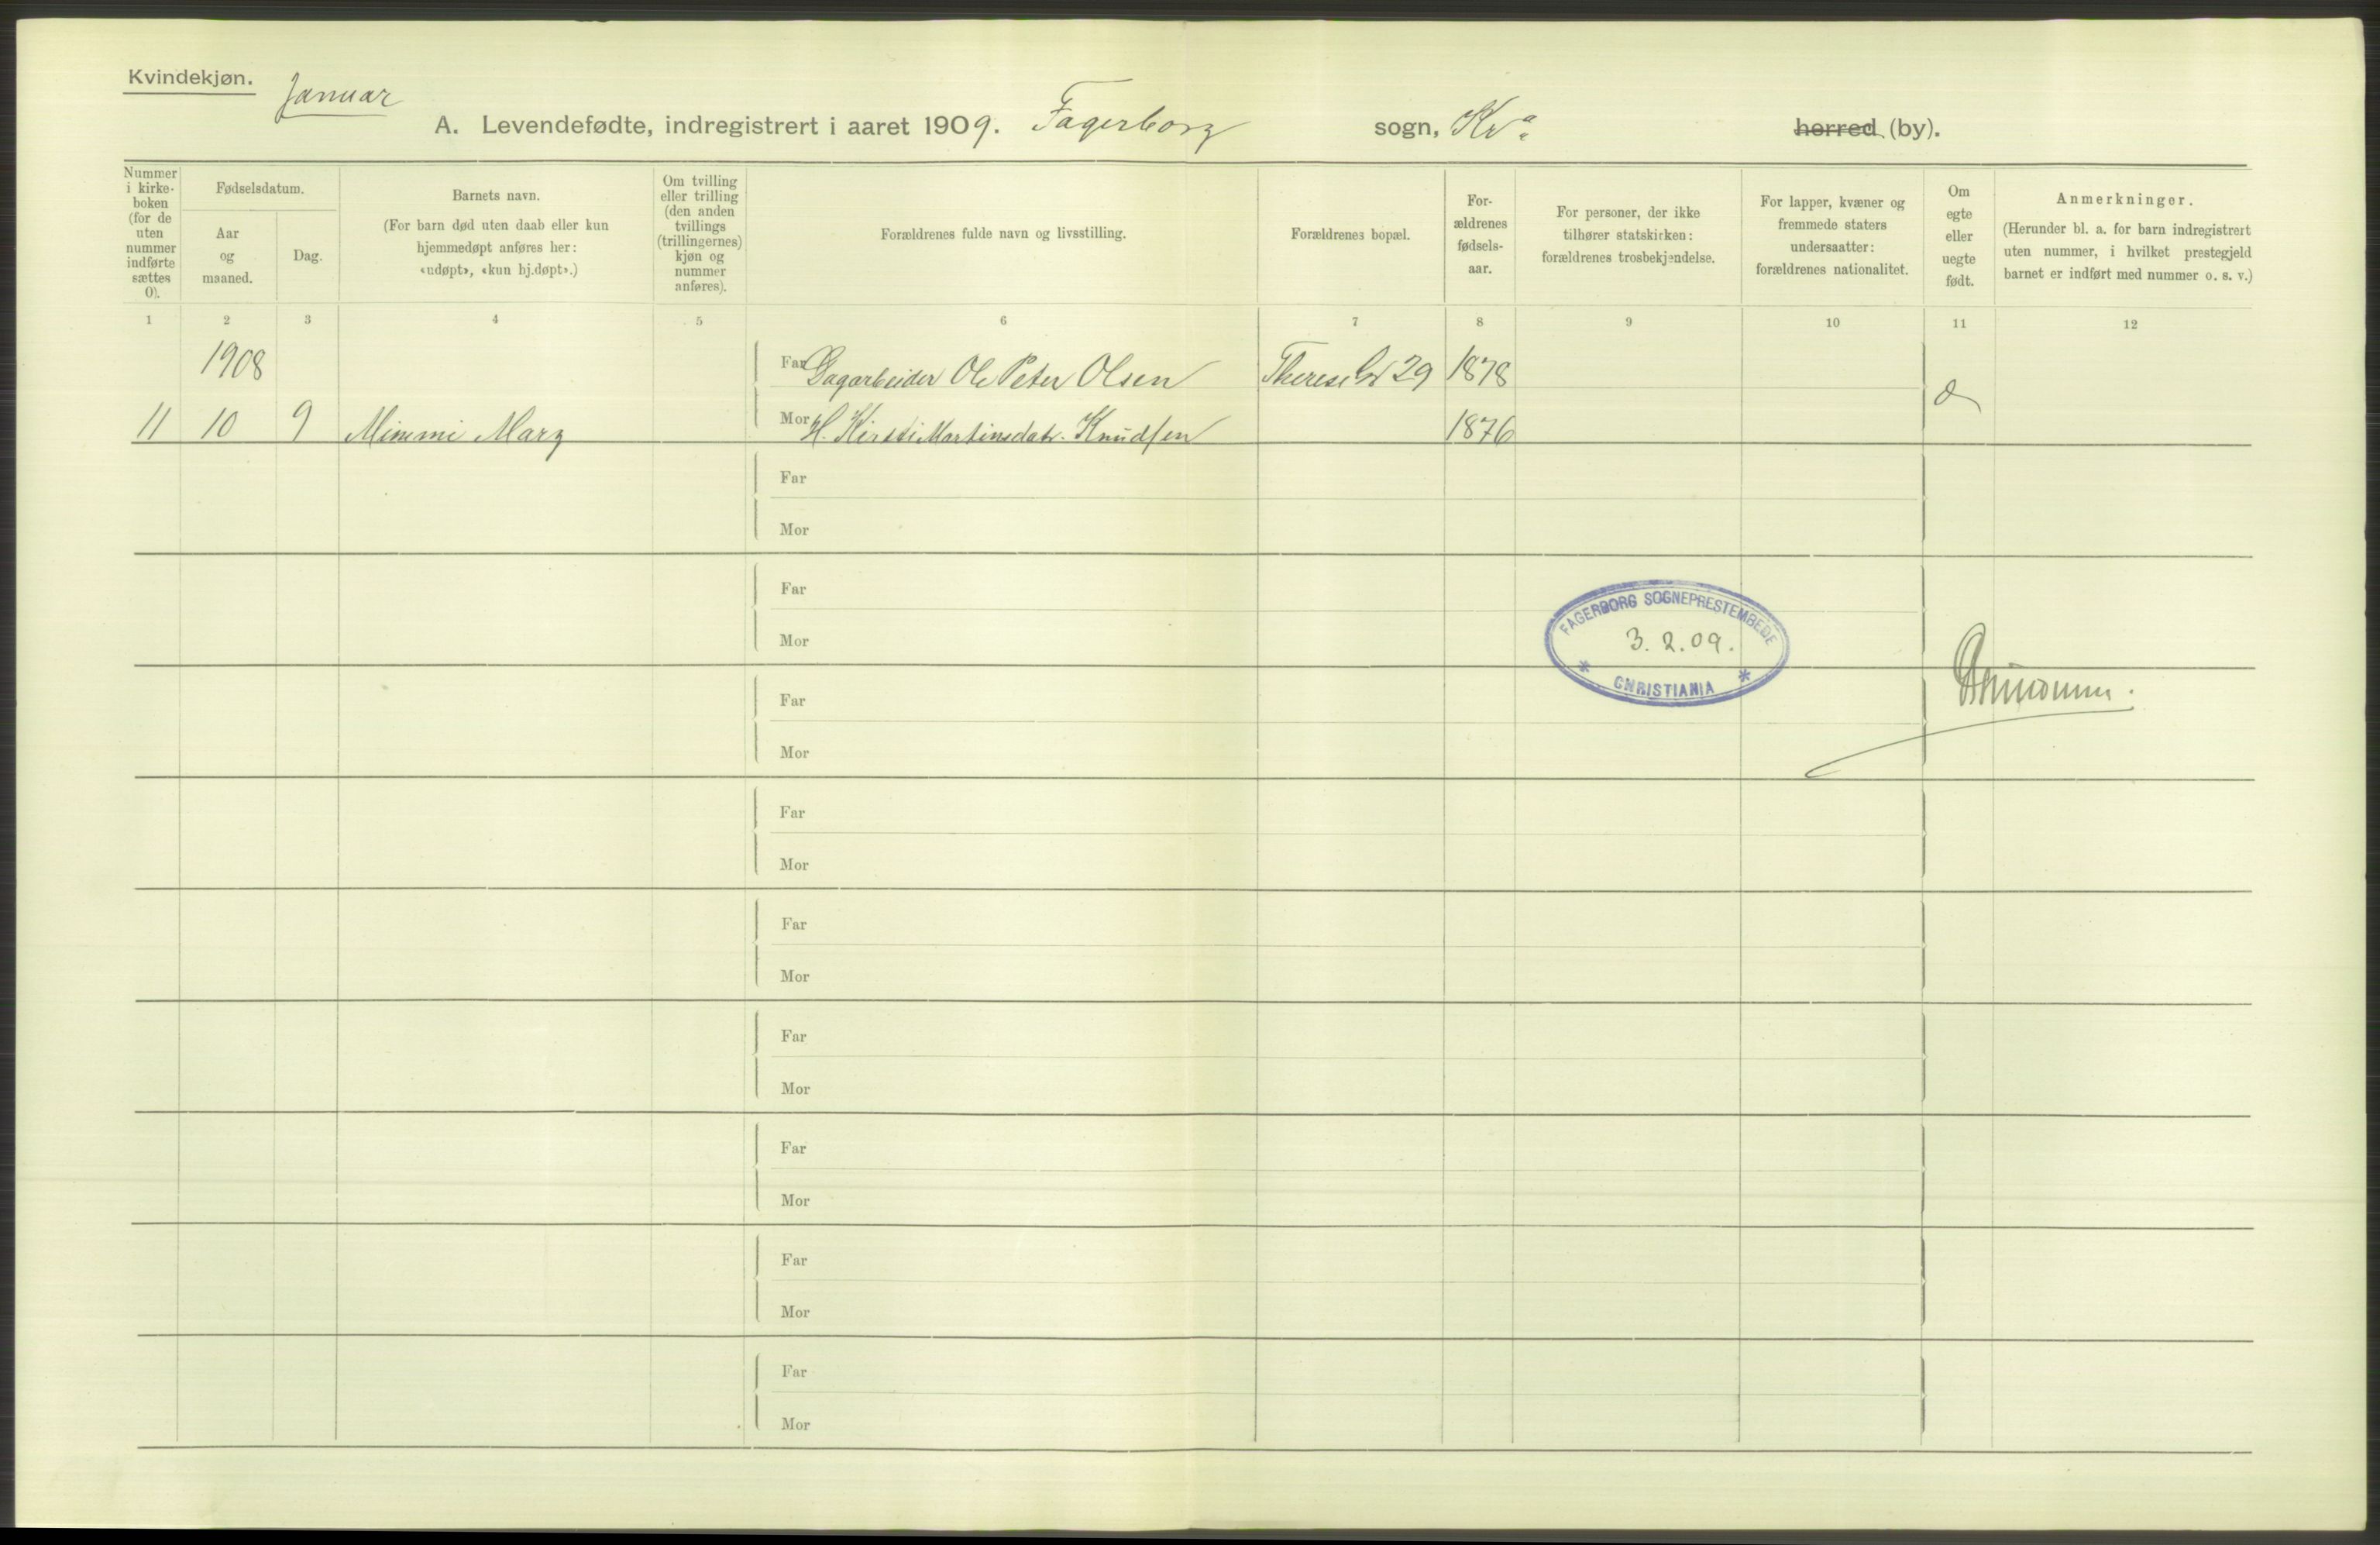 Kvindekjøn.
Januar
A. Levendefødte, indregistrert i aaret 1909. Fagerborg sogn, Kr.a herred (by).
Nummer i kirke-boken (for de uten nummer indførte sættes 0).
Fødselsdatum.
Aar og maaned.
Dag.
Barnets navn.
(For barn død uten daab eller kun hjemmedøpt anføres her: «udøpt», «kun hj.døpt».)
Om tvilling eller trilling (den anden tvillings (trillingernes) kjøn og nummer anføres).
Forældrenes fulde navn og livsstilling.
Forældrenes bopæl.
For-ældrenes fødsels-aar.
For personer, der ikke tilhører statskirken: forældrenes trosbekjendelse.
For lapper, kvæner og fremmede staters undersaatter: forældrenes nationalitet.
Om egte eller uegte født.
Anmerkninger.
(Herunder bl. a. for barn indregistrert uten nummer, i hvilket prestegjeld barnet er indført med nummer o. s. v.)
1 2 3 4 5 6 7 8 9 10 11 12
1908 Far Dagarbeider Ole Peter Olsen Therese Gd 29 1878
11 10 9 Mimmi Mary Mor H. Kirsti Martinsdatr. Knudsen 1876
Far
Mor
Far
Mor
Far
Mor
Far
Mor
Far
Mor
Far
Mor
Far
Mor
Far
Mor
Far
Mor
FAGERBORG SOGNEPRESTEMBEDE
3.2.09.
* CHRISTIANIA *